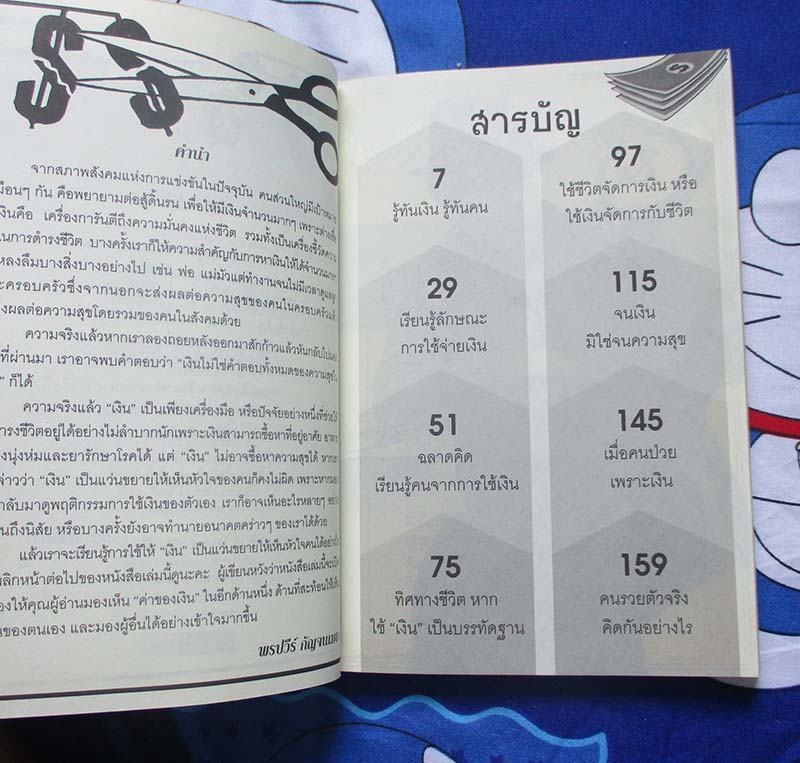 คำนำ
จากสภาพสังคมแห่งการแข่งขันในปัจจุบัน คนส่วนใหญ่มีเป้าหมาย
เหมือนๆ กัน คือพยายามต่อสู้ดิ้นรน เพื่อให้มีเงินจำนวนมากๆ เพราะต่างเชื่อ
เงินคือ เครื่องการันตีถึงความมั่นคงแห่งชีวิต รวมทั้งเป็นเครื่องชี้วัดความ
ในการดำรงชีวิต บางครั้งเราก็ให้ความสำคัญกับการหาเงินให้ได้จำนวนมากๆ
หลงลืมบางสิ่งบางอย่างไป เช่น พ่อ แม่มัวแต่ทำงานจนไม่มีเวลาดูแลลูก
ครอบครัวซึ่งจากนอกจะส่งผลต่อความสุขของคนในครอบครัวแล้ว
ส่งผลต่อความสุขโดยรวมของคนในสังคมด้วย
ความจริงแล้วหากเราลองถอยหลังออกมาสักก้าวแล้วหันกลับไปมอง
ที่ผ่านมา เราอาจพบคำตอบว่า “เงินไม่ใช่คำตอบทั้งหมดของความสุขใน
” ก็ได้
ความจริงแล้ว “เงิน” เป็นเพียงเครื่องมือ หรือปัจจัยอย่างหนึ่งที่ช่วยให้
ดำรงชีวิตอยู่ได้อย่างไม่ลำบากนักเพราะเงินสามารถซื้อหาที่อยู่อาศัย อาหาร
นุ่งห่มและยารักษาโรคได้ แต่ “เงิน” ไม่อาจซื้อหาความสุขได้ หาก
กล่าวว่า “เงิน” เป็นแว่นขยายให้เห็นหัวใจของคนก็คงไม่ผิด เพราะหาก
กลับมาดูพฤติกรรมการใช้เงินของตัวเอง เราก็อาจเห็นอะไรหลายๆ อย่าง
ถึงนิสัย หรือบางครั้งยังอาจทำนายอนาคตคร่าวๆ ของเราได้ด้วย
แล้วเราจะเรียนรู้การใช้ให้ “เงิน” เป็นแว่นขยายให้เห็นหัวใจคนได้อย่างไร
พลิกหน้าต่อไปของหนังสือเล่มนี้ดูนะคะ ผู้เขียนหวังว่าหนังสือเล่มนี้จะ
ให้คุณผู้อ่านมองเห็น “ค่าของเงิน” ในอีกด้านหนึ่ง ด้านที่สะท้อนให้เห็น
ของตนเอง และมองผู้อื่นได้อย่างเข้าใจมากขึ้น
พรปวีร์
สารบัญ
7
รู้ทันเงิน รู้ทันคน
29
เรียนรู้ลักษณะ
การใช้จ่ายเงิน
51
ฉลาดคิด
เรียนรู้คนจากการใช้เงิน
75
ทิศทางชีวิต หาก
ใช้ “เงิน” เป็นบรรทัดฐาน
97
ใช้ชีวิตจัดการเงิน หรือ
ใช้เงินจัดการกับชีวิต
115
จนเงิน
มิใช่จนความสุข
145
เมื่อคนป่วย
เพราะเงิน
159
คนรวยตัวจริง
คิดกันอย่างไร